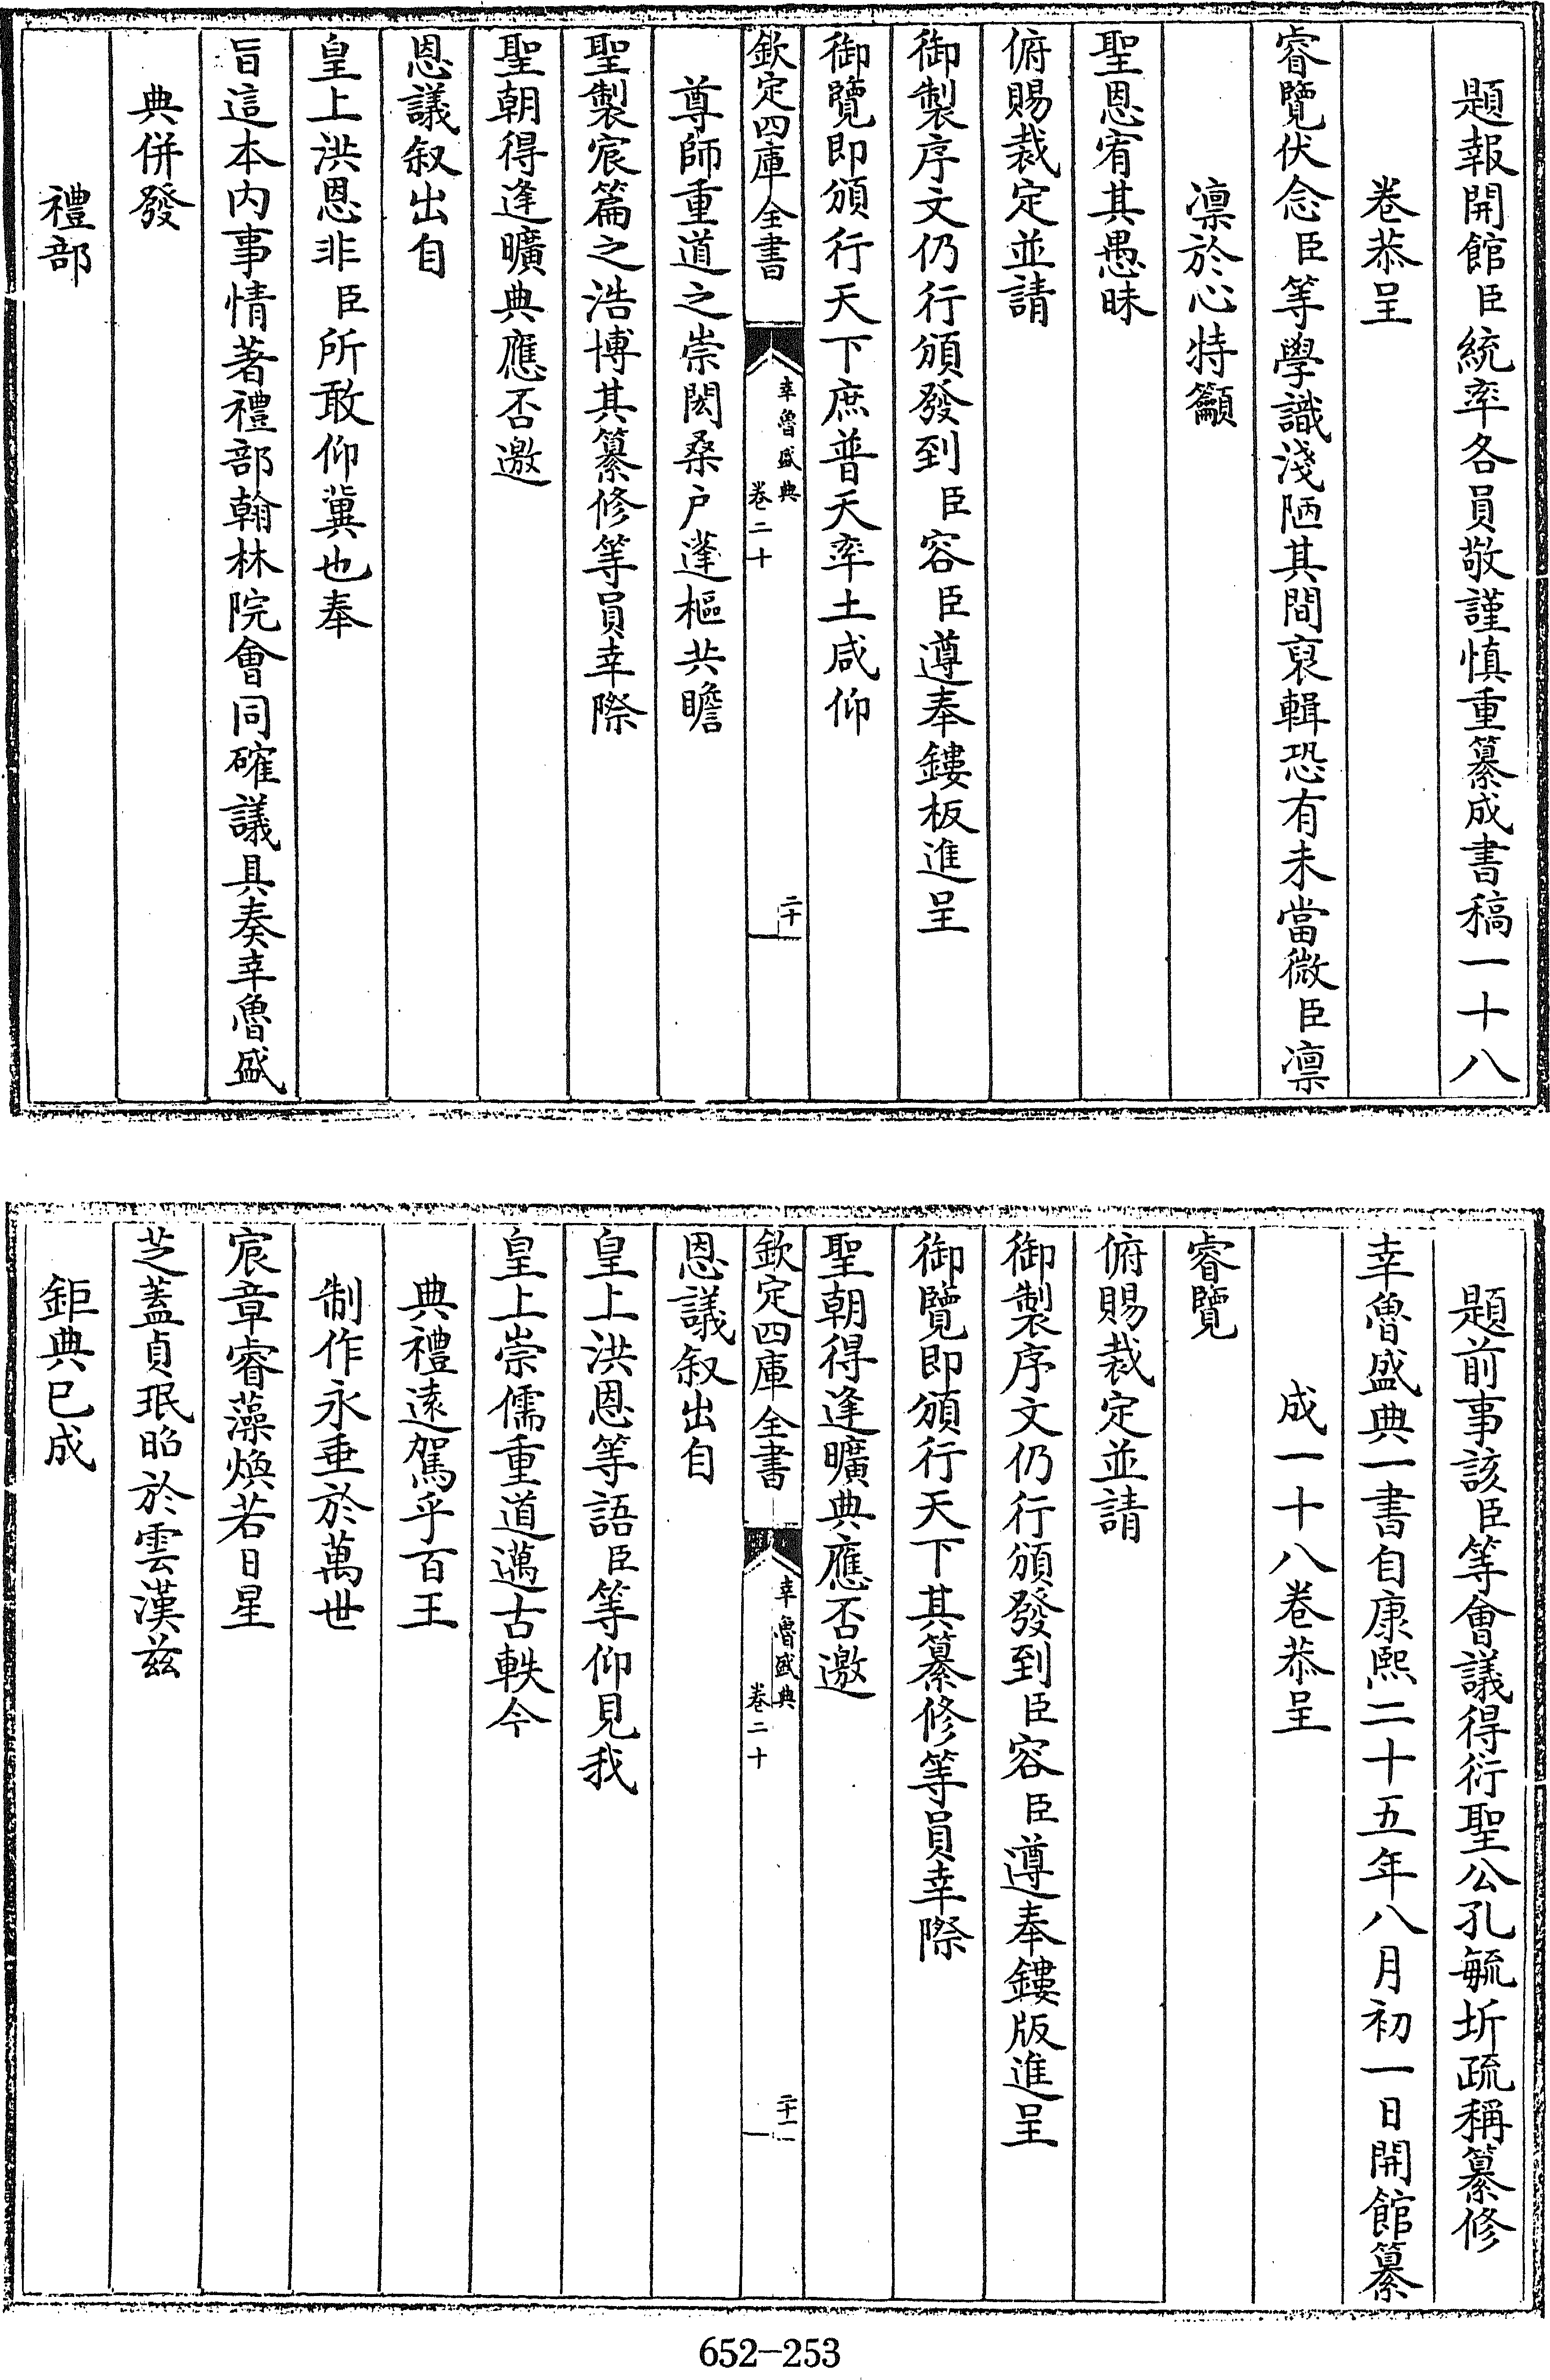 題報開館臣統率各員敬謹慎重纂成書稿一十八
卷恭呈
睿覽伏念臣等學識淺陋其間裒輯恐有未當微臣凜
凜於心特籲
聖恩宥其愚昧
俯賜裁定並請
御製序文仍行頒發到臣容臣遵奉鏤板進呈
御覽即頒行天下庶普天率土咸仰
欽定四庫全書
幸魯盛典
卷二十
二十
尊師重道之崇閎桑户蓬樞共瞻
聖製宸篇之浩博其纂修等員幸際
聖朝得逢曠典應否邀
恩議叙出自
皇上洪恩非臣所敢仰冀也奉
旨這本内事情著禮部翰林院會同確議具奏幸魯盛
典併發
禮部
題前事該臣等會議得衍聖公孔毓圻疏稱纂修
幸魯盛典一書自康熙二十五年八月初一日開館纂
成一十八卷恭呈
睿覽
俯賜裁定並請
御製序文仍行頒發到臣容臣遵奉鏤版進呈
御覽即頒行天下其纂修等員幸際
聖朝得逢曠典應否邀
欽定四庫全書
幸魯盛典
卷二十
二十一
恩議叙出自
皇上洪恩等語臣等仰見我
皇上崇儒重道邁古軼今
典禮遠駕乎百王
制作永垂於萬世
宸章睿藻煥若日星
芝蓋貞珉昭於雲漢兹
鉅典已成
652-253